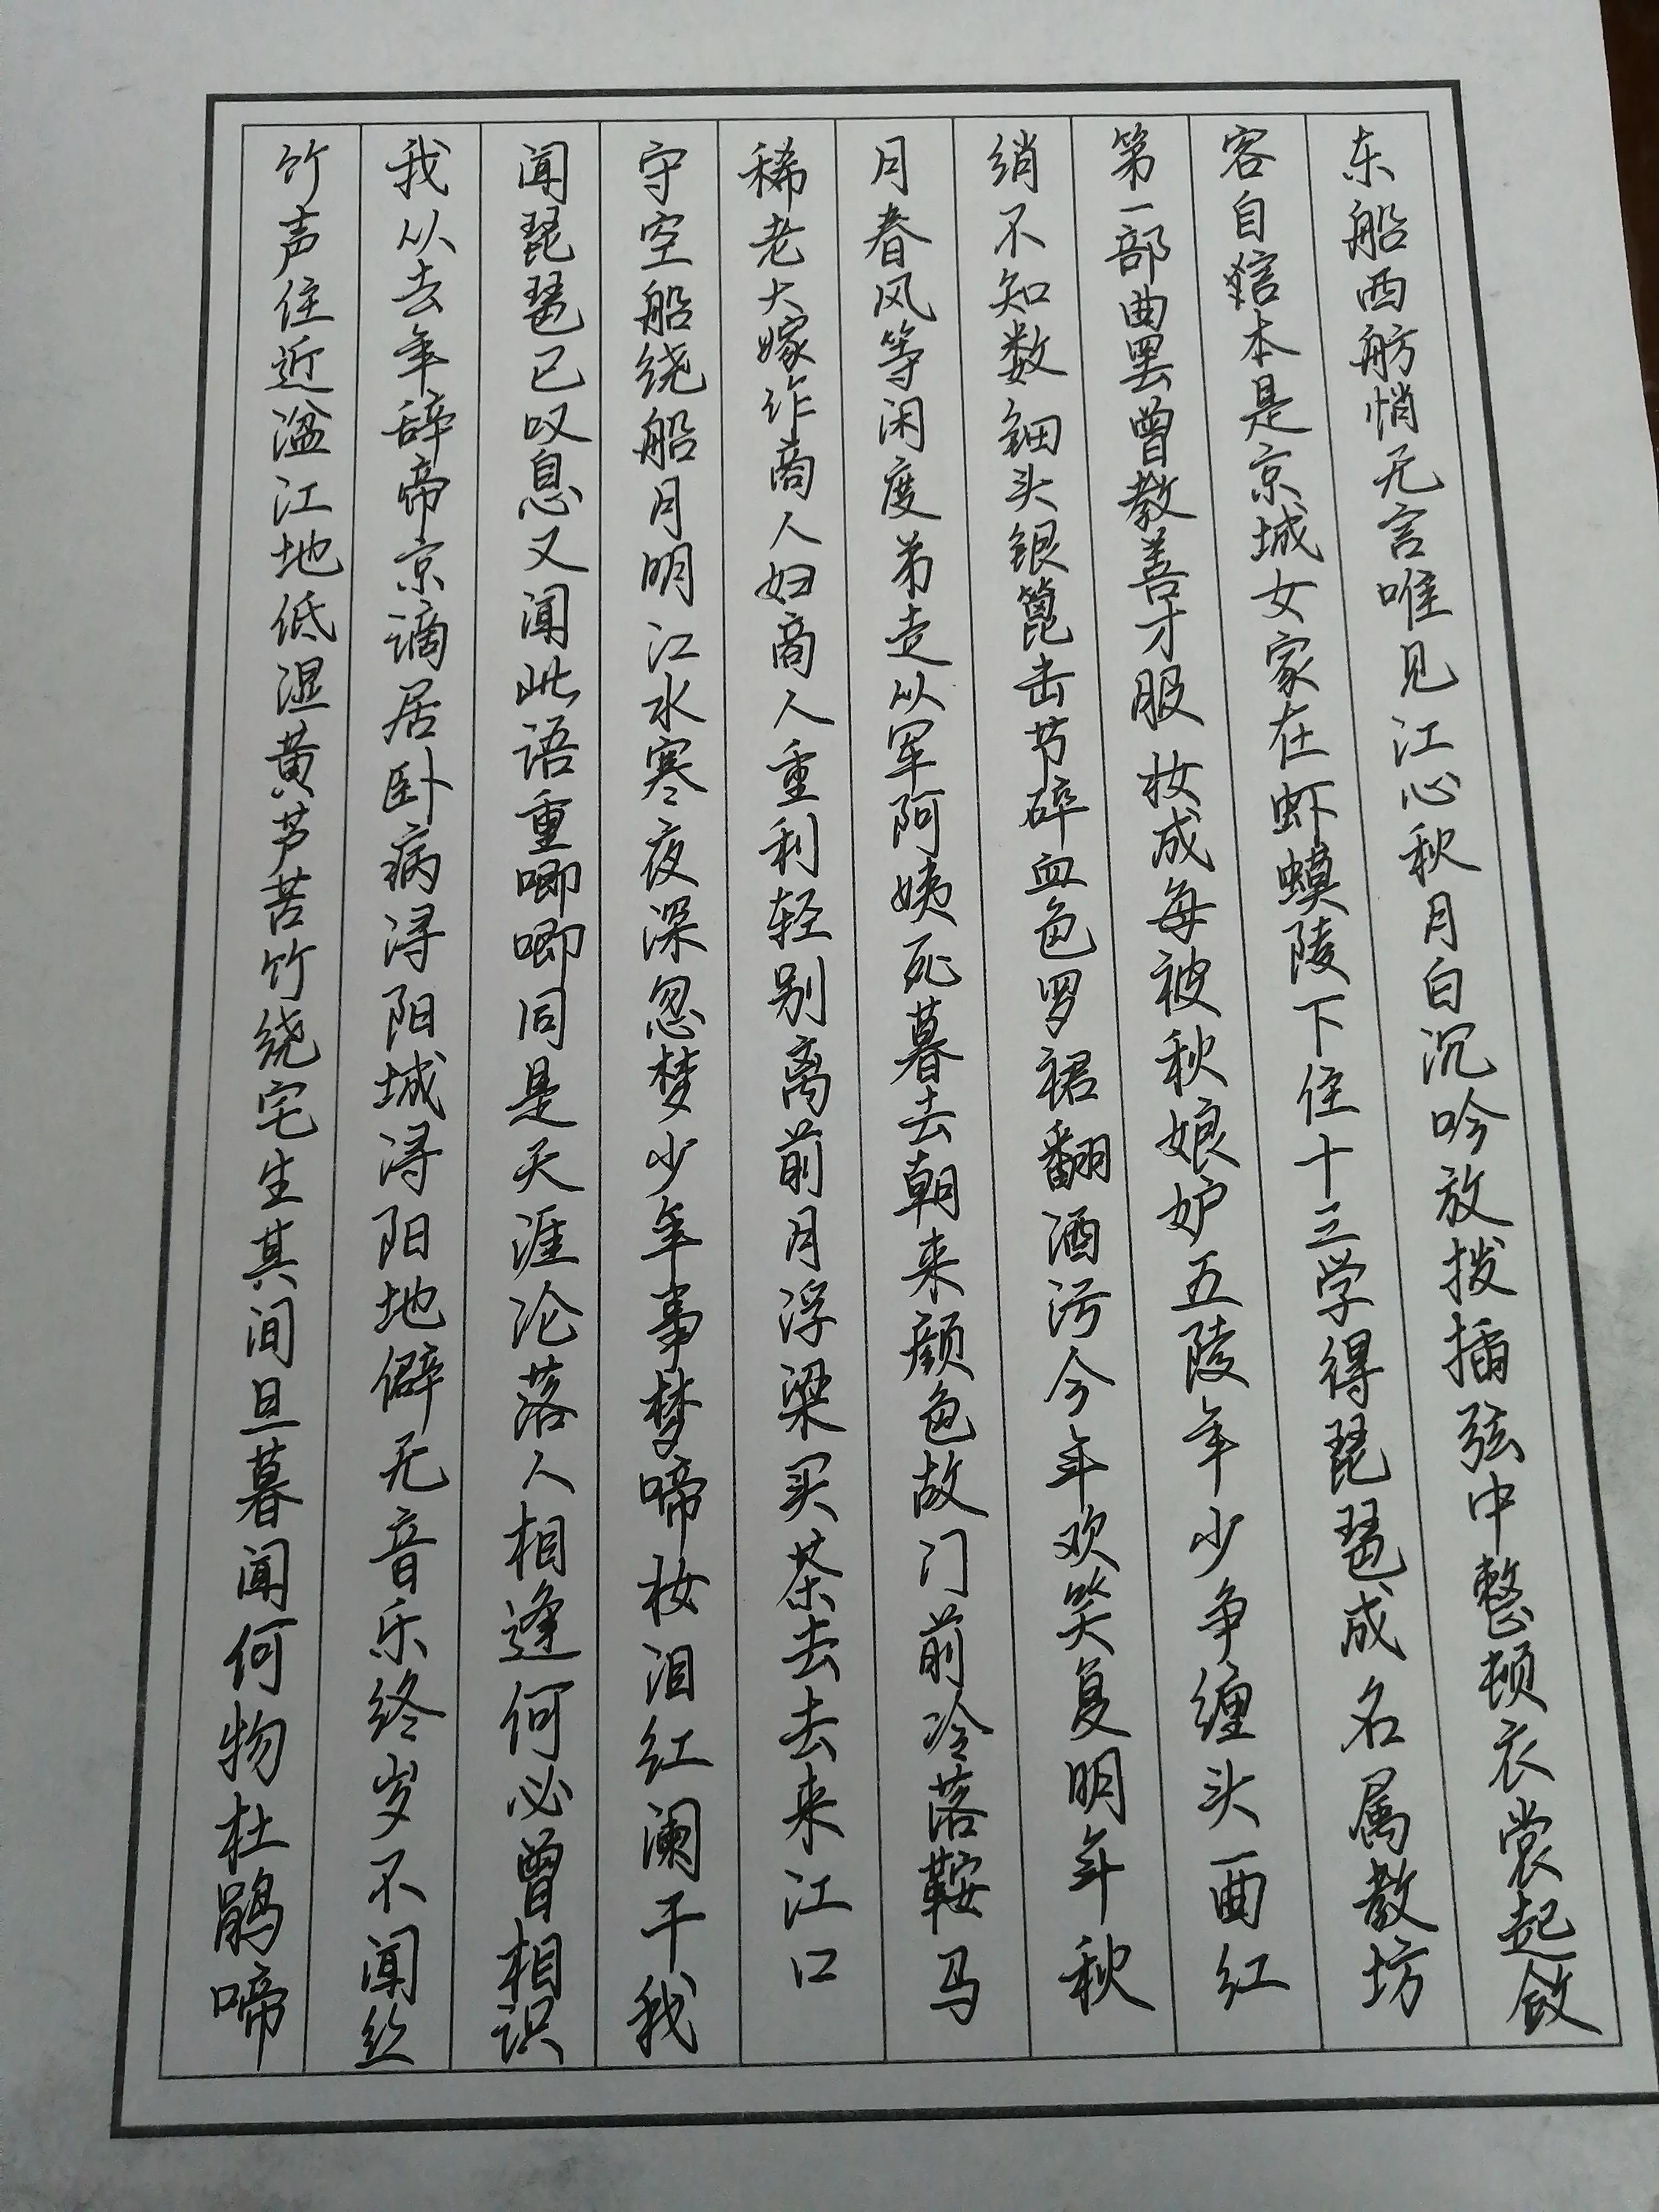 东船西舫悄无言唯见江心秋月白沉吟放拨插弦中整顿衣裳起敛
容自言本是京城女家在虾蟆陵下住十三学得琵琶成名属教坊
第一部曲罢曾教善才服妆成每被秋娘妒五陵年少争缠头一曲红
绡不知数钿头银篦击节碎血色罗裙翻酒污今年欢笑复明年秋
月春风等闲度弟走从军阿姨死暮去朝来颜色故门前冷落鞍马
稀老大嫁作商人妇商人重利轻别离前月浮梁买茶去去来江口
守空船绕船月明江水寒夜深忽梦少年事梦啼妆泪红阑干我
闻琵琶已叹息又闻此语重唧唧同是天涯沦落人相逢何必曾相识
我从去年辞帝京谪居卧病浔阳城浔阳地僻无音乐终岁不闻丝
竹声住近湓江地低湿黄芦苦竹绕宅生其间旦暮闻何物杜鹃啼